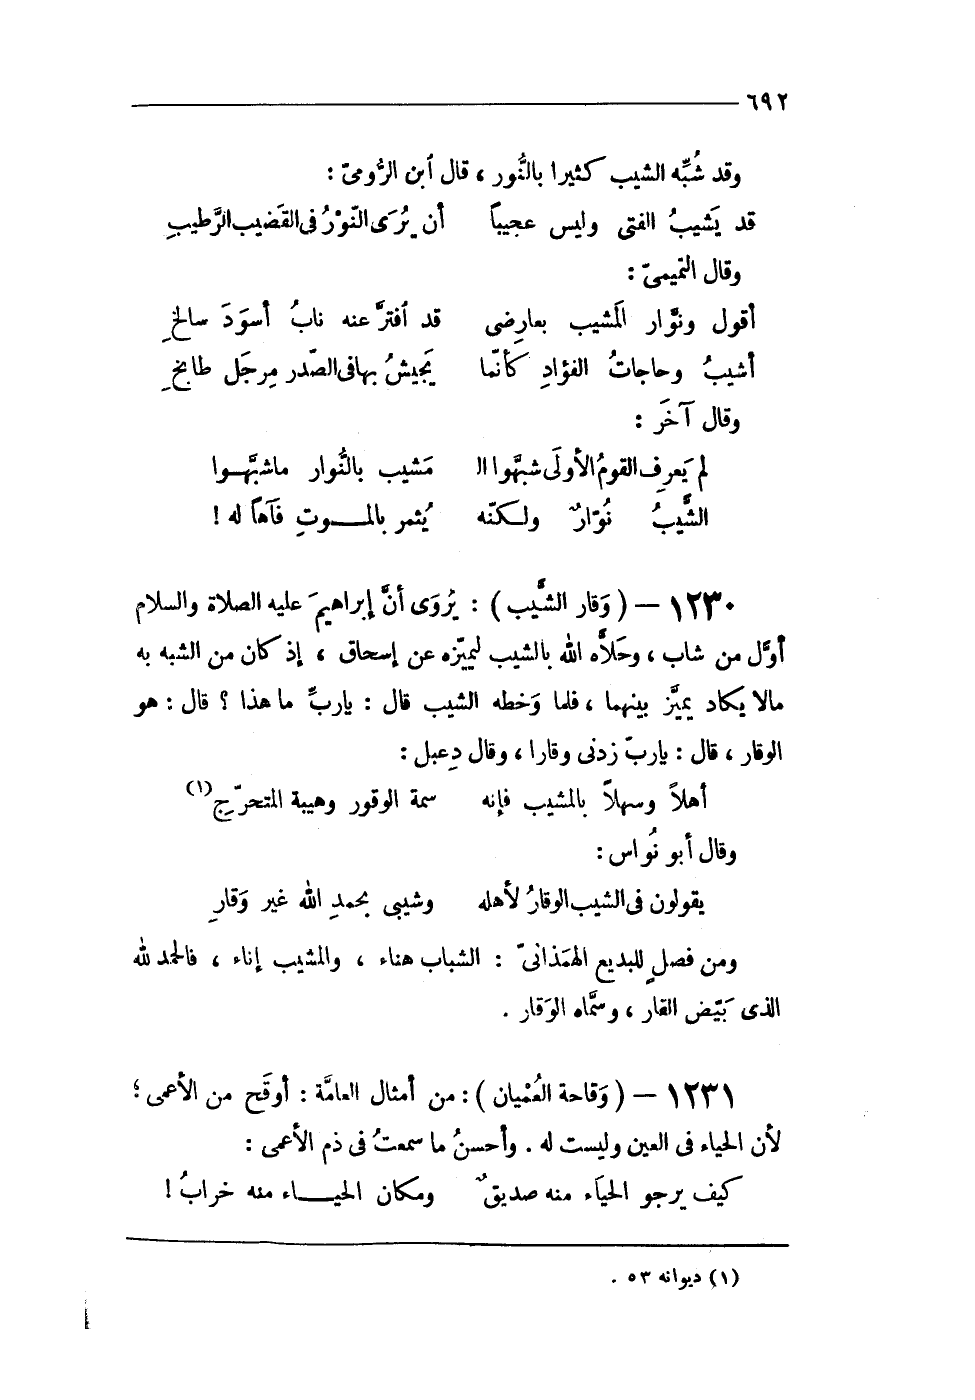 ٦٩٢
وقد شُبِّه الشيب كثيرا بالنُّور ، قال ٱبن الرُّومىّ :
قد يَشيبُ الفتى وليس عجيباً أن يُرَى النَّوْرُ فى القَضيب الرَّطيبِ
وقال التميمىّ :
أقول ونوَّار المَشيب بعارِضى قد ٱفترَّ عنه نابُ أسوَدَ سالخِ
أشيبُ وحاجاتُ الفؤادِ كَأنّما يَجيشُ بها فى الصّدر مِرجَل طابخِ
وقال آخَر :
لم يَعرِف القومُ الأولَى شبهَّوا الـ مَشيب بالنُّوار ماشبَّهوا
الشَّيبُ نُوّارٌ ولكنّه يُثمر بالموتِ فَآهاً له !
١٢٣٠ — ( وَقار الشَّيب ) : يُروَى أنَّ إبراهيمَ عليه الصلاة والسلام
أوّل من شاب ، وحَلاَّه الله بالشيب ليميّزه عن إسحاق ، إذ كان من الشبه به
مالا يكاد يميَّز بينهما ، فلما وَخطه الشيب قال : ياربِّ ما هذا ؟ قال : هو
الوقار ، قال : ياربّ زدنى وقارا ، وقال دِعبل :
أهلاً وسهلاً بالمشيب فإنه سمة الوقور وهيبة المتحرّجِ (١)
وقال أبو نُواس :
يقولون فى الشيب الوقارُ لأهله وشيبى بحمدِ الله غير وَقارِ
ومن فصلٍ للبديع الهمَذانىّ : الشباب هناء ، والمشيب إناء ، فالحمد لله
الذى بَيّض القار ، وسمَّاه الوَقار .
١٢٣١ — ( وَقاحة العُمْيان ) : من أمثال العامَّة : أوقَح من الأعمى ؛
لأن الحياء فى العين وليست له . وأحسنُ ما سمعتُ فى ذم الأعمى :
كيف يرجو الحيَاء منه صديقٌ ومكان الحياء منه خرابُ !
(١) ديوانه ٥٣ .